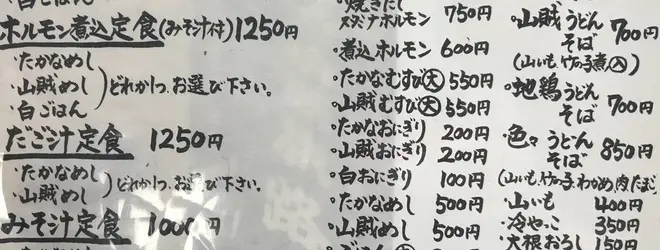 ・白ごはん
ホルモン煮込定食(みそ汁付) 1250円
・たかなめし
・山賊めし
・白ごはん
どれか1つ、お選び下さい。
だご汁定食 1250円
・たかなめし
・山賊めし
どれか1つ、お選び下さい。
みそ汁定食 1000円
ホルモン 750円
・煮込ホルモン 600円
・たかなむすび(大) 550円
・山賊むすび(大) 550円
・たかなおにぎり 200円
・山賊おにぎり 200円
・白おにぎり 100円
・たかなめし 500円
・山賊めし 500円
・山賊うどん
そば 700円
(山いも、竹の子煮入)
・地鶏うどん
そば 700円
・色々うどん
そば 850円
(山いも、竹の子、わかめ、肉、たまご)
・山いも 400円
・冷やっこ 350円
・大根おろし 150円